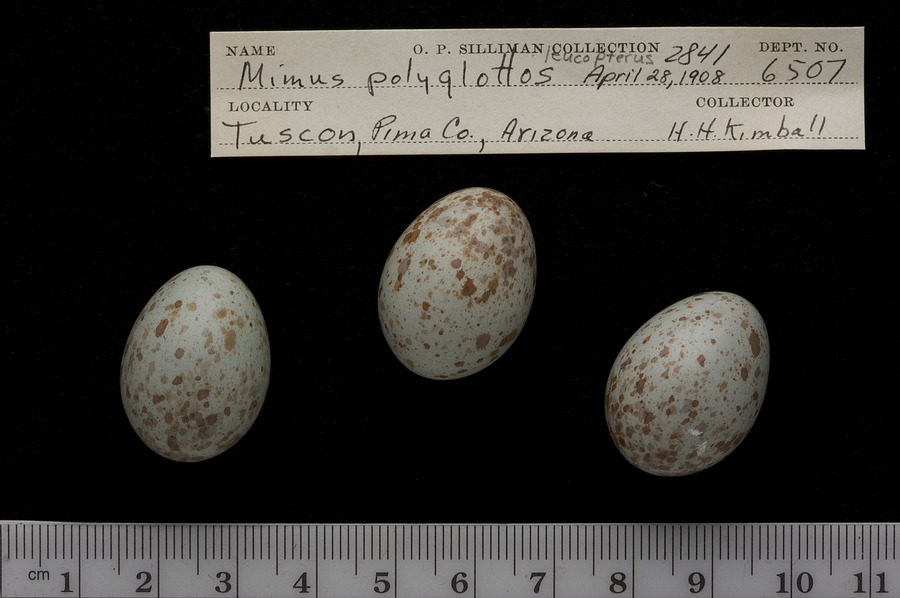 NAME O. P. SILLIMAN COLLECTION 2841 DEPT. NO.
leucopterus
Mimus polyglottos April 28, 1908 6507
LOCALITY COLLECTOR
Tuscon, Pima Co., Arizona H. H. Kimball
cm 1 2 3 4 5 6 7 8 9 10 11